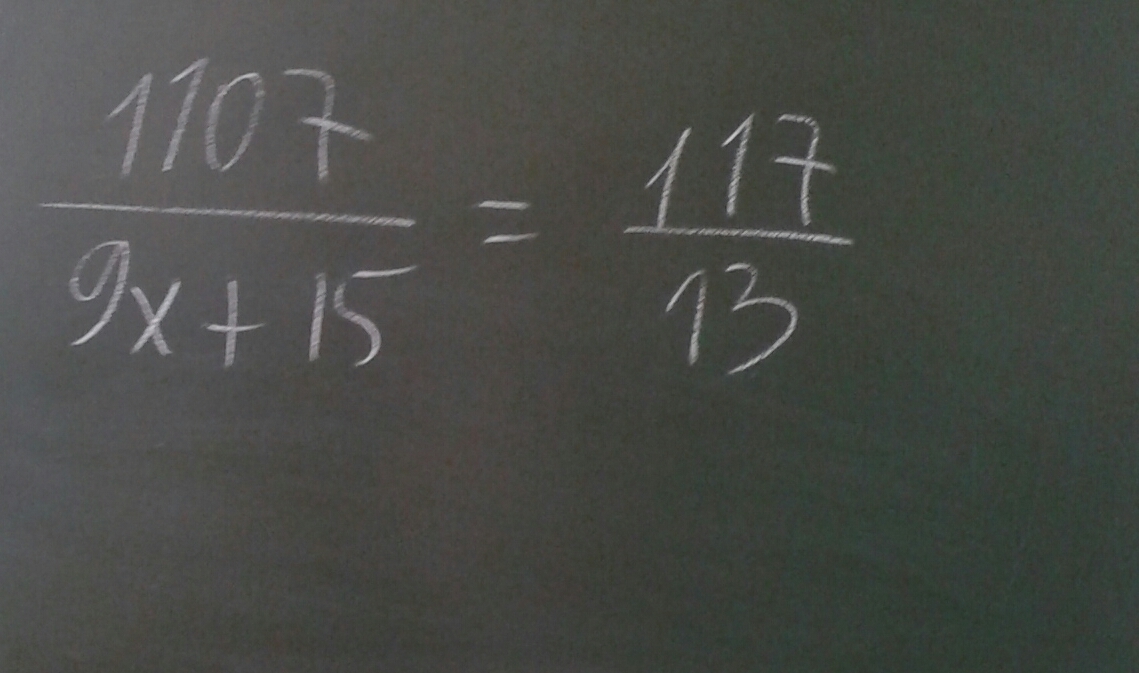 1107 / 9x + 15 = 117 / 13